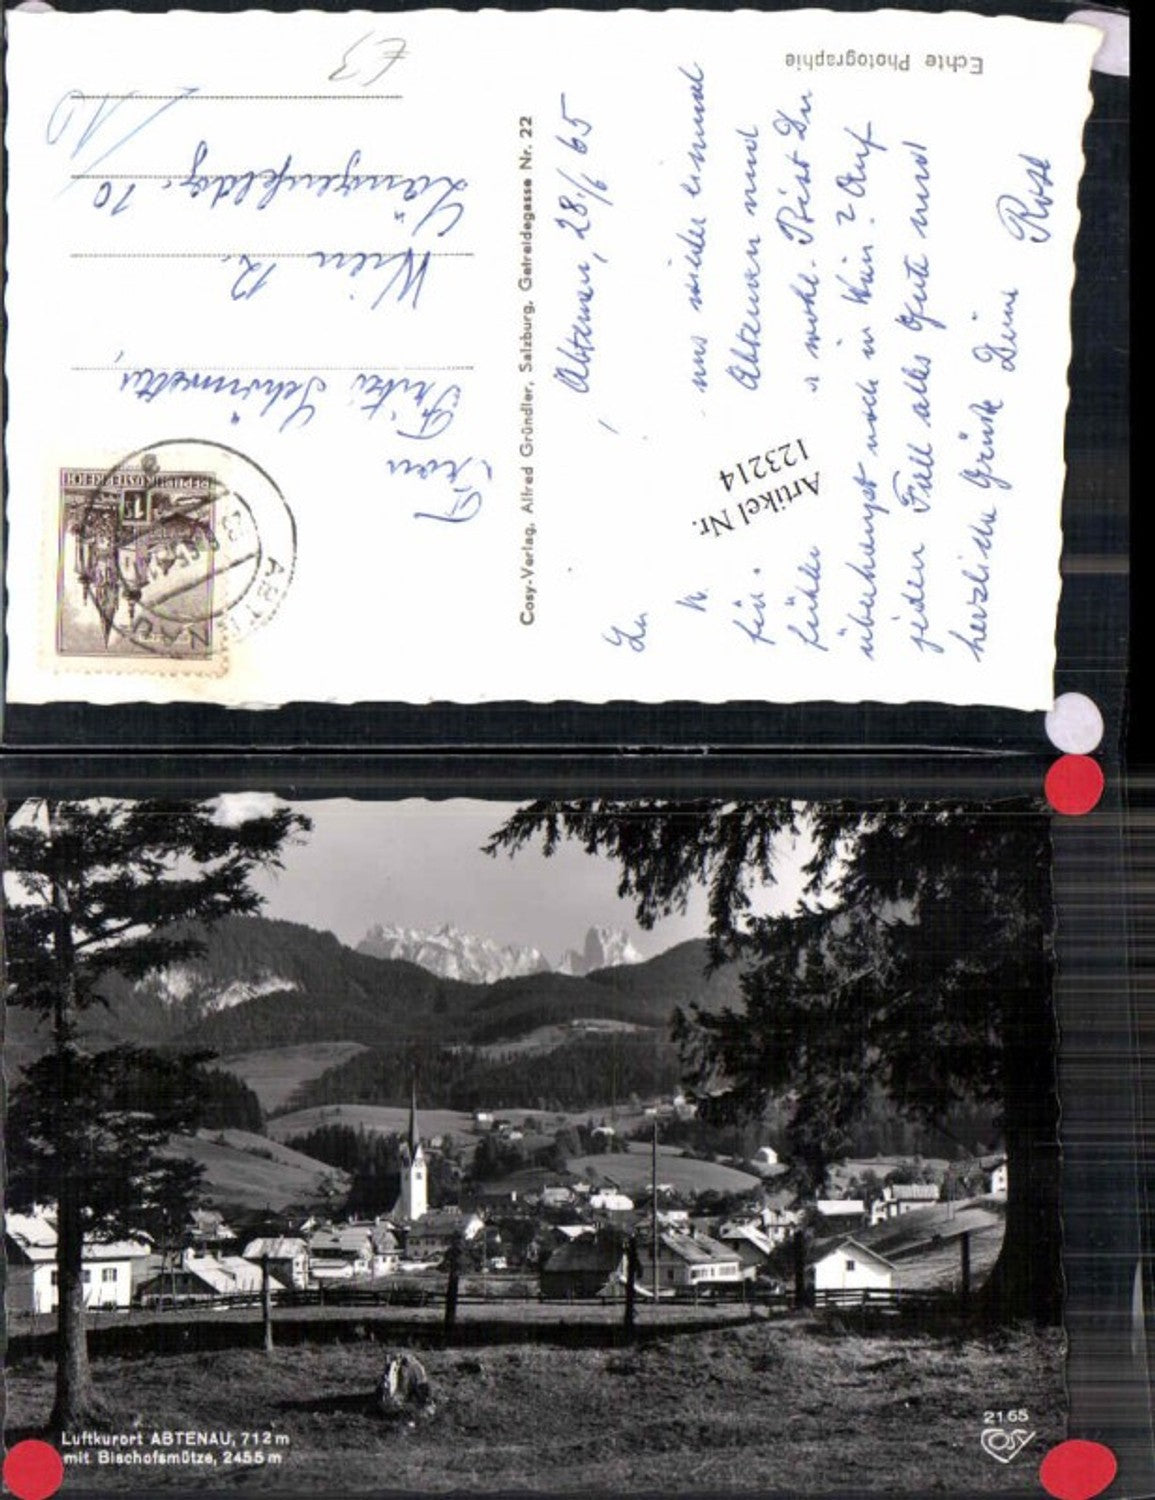 Echte Photographie
Abtenau, 28./6 65
uns wieder einmal
für Abtenau und
früher wohl. Bist Du
überhaupt noch in Wien? Auf
jeden Fall alles Gute und
herzliche Grüße Deine Rosa
Artikel Nr.
123214
Cosy-Verlag, Alfred Gründler, Salzburg, Getreidegasse Nr. 22
REPUBLIK ÖSTERREICH
ABTENAU
Frau
Fritzi
Wien 12.
Längenfeldg. 70
€3
10
Luftkurort ABTENAU, 712 m
mit Bischofsmütze, 2455 m
2165
COSY